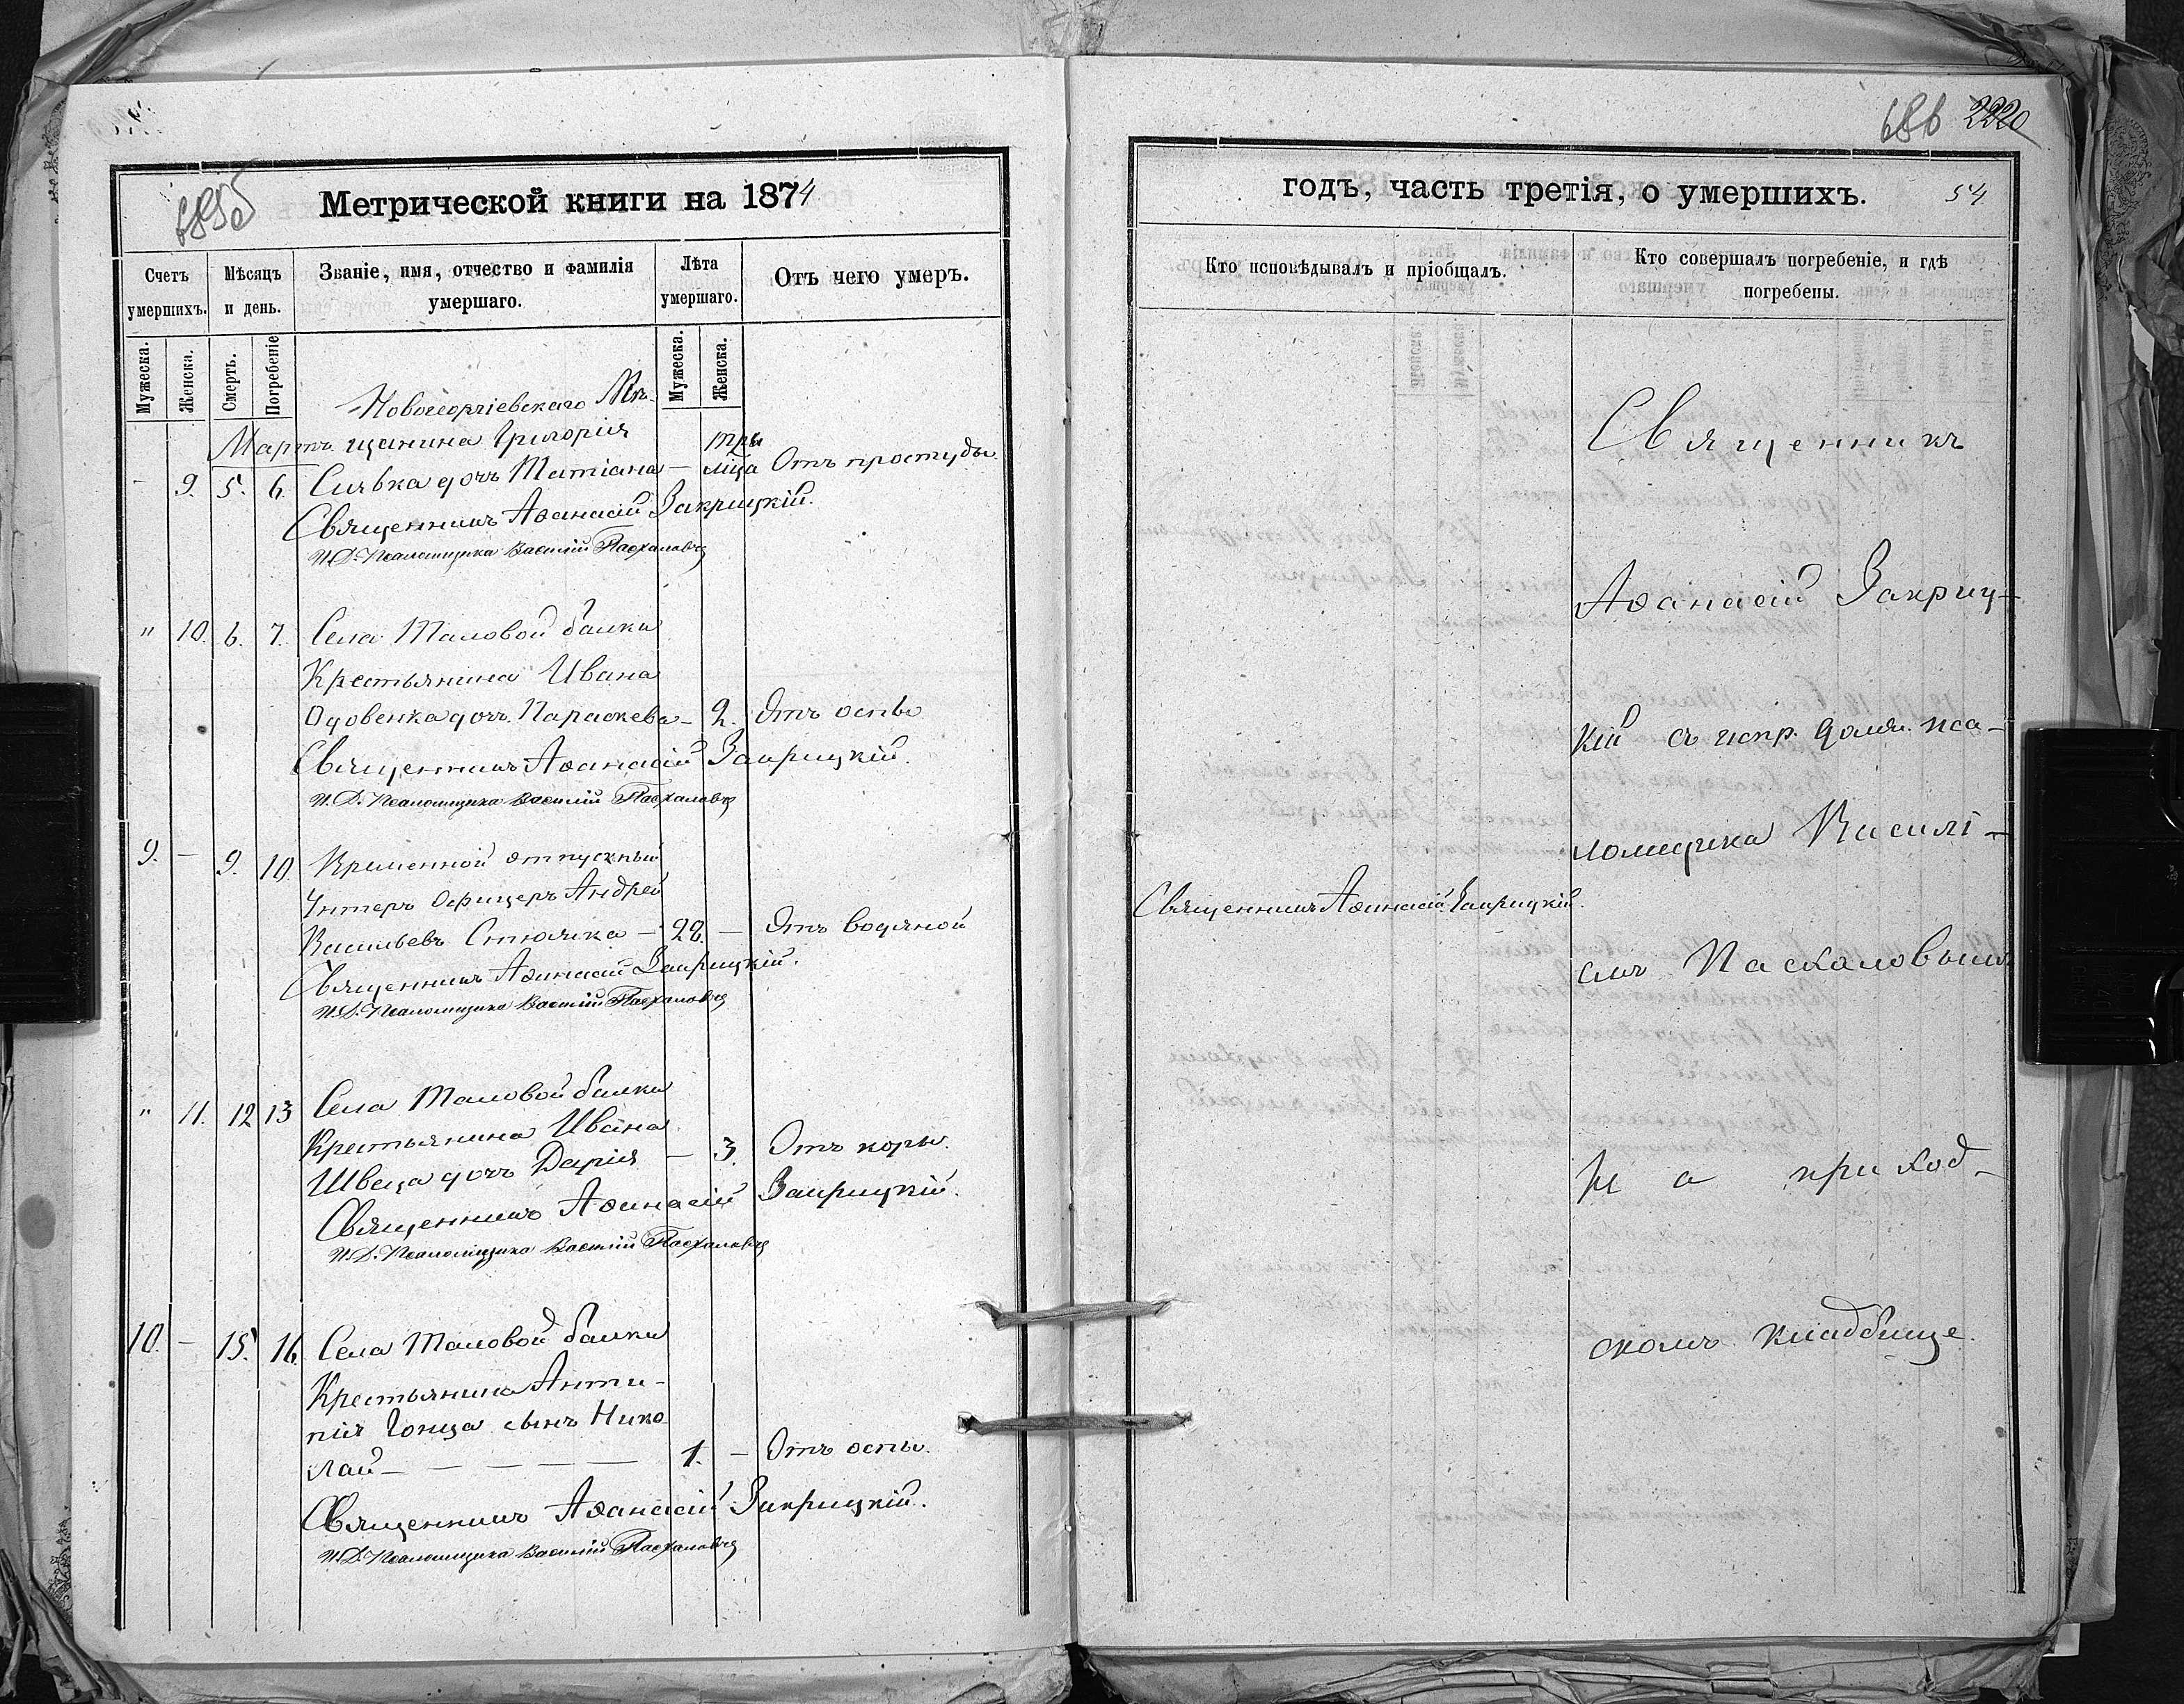 685
Метрической книги на 1874
Счетъ умершихъ.
Мѣсяцъ и день.
Званіе, имя, отчество и фамилія умершаго.
Лѣта умершаго.
Отъ чего умеръ.
Мужеска.
Женска.
Смерть.
Погребеніе
Мужеска.
Женска.
Мартъ
Новогеоргіевскаго Мѣ-
щанина Григорія
три
- 9. 5. 6. Сивка дочь Татіана — мца Отъ простуды
Священникъ Аѳанасій Закрицкій.
И. Д. Псаломщика Василій Пасхаловъ
" 10. 6. 7. Села Таловой балки
Крестьянина Ивана
Одовенка дочь Параскева — 2. Отъ оспы
Священникъ Аѳанасій Закрицкій.
И. Д. Псаломщика Василій Пасхаловъ
9. — 9. 10. Временной отпускный
Унтеръ Офицеръ Андрей
Васильевъ Стюлка — 28. — Отъ водяной
Священникъ Аѳанасій Закрицкій.
И. Д. Псаломщика Василій Пасхаловъ
" 11. 12 13 Села Таловой балки
Крестьянина Ивана
Швеца дочь Дарія — 3. Отъ кори.
Священникъ Аѳанасій Закрицкій.
И. Д. Псаломщика Василій Пасхаловъ
10. — 15. 16. Села Таловой балки
Крестьянина Анти-
пія Гонца сынъ Нико-
лай — — — — — 1. — Отъ оспы.
Священникъ Аѳанасій Закрицкій.
И. Д. Псаломщика Василій Пасхаловъ
686 2220
годъ, часть третія, о умершихъ.
54
Кто исповѣдывалъ и пріобщалъ.
Кто совершалъ погребеніе, и гдѣ погребены.
Священникъ Аѳанасій Закрицкій.
Священникъ
Аѳанасій Закриц-
кій съ испр. долж. пса-
ломщика Василі-
емъ Паскаловымъ
На приход-
скомъ кладбище.